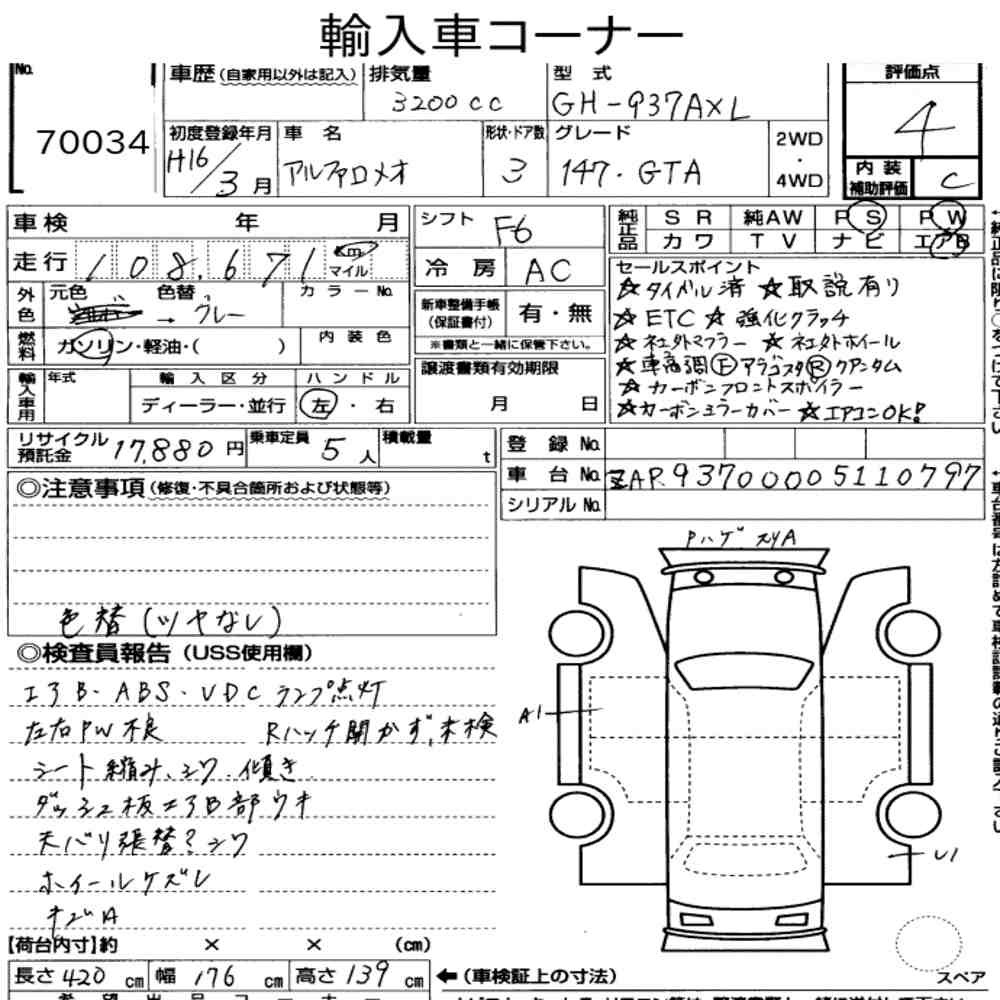 輸入車コーナー
No.
70034
車歴(自家用以外は記入)
排気量
3200cc
型 式
GH-937AXL
評価点
4
初度登録年月
H16/3月
車 名
アルファロメオ
形状・ドア数
3
グレード
147・GTA
2WD
・
4WD
内装
補助評価
C
車検 年 月
シフト
F6
純正品
SR 純AW PS PW
カワ TV ナビ エアB
走行 108.671 km
マイル
冷 房
AC
セールスポイント
☆タイベル済 ☆取説有り
☆ETC ☆強化クラッチ
☆社外マフラー ☆社外ホイール
☆車高調Ⓕアラゴスタ Ⓡクアンタム
☆カーボンフロントスポイラー
☆カーボンミラーカバー ☆エアコンOK!
外色
元色 色替
→ グレー
カラーNo.
新車整備手帳
(保証書付)
有・無
※書類と一緒に保管下さい。
燃料
ガソリン・軽油・( )
内装色
譲渡書類有効期限
月 日
輸入車用
年式
輸入区分
ディーラー・並行
ハンドル
左・右
リサイクル
預託金
17,880円
乗車定員
5人
積載量
t
登録No.
車台No.
ZAR93700005110797
シリアルNo.
◎注意事項(修復・不具合箇所および状態等)
色替(ツヤなし)
◎検査員報告(USS使用欄)
エアB・ABS・VDCランプ点灯
左右PW不良 Rハッチ開かず,未検
シート縮み、シワ、傾き
ダッシュ板エアB部ウキ
天バリ張替?シワ
ホイールケズレ
キズA
Pハゲ スリA
A1
U1
スペア
【荷台内寸】約 × × (cm)
長さ420cm 幅176cm 高さ139cm
←(車検証上の寸法)